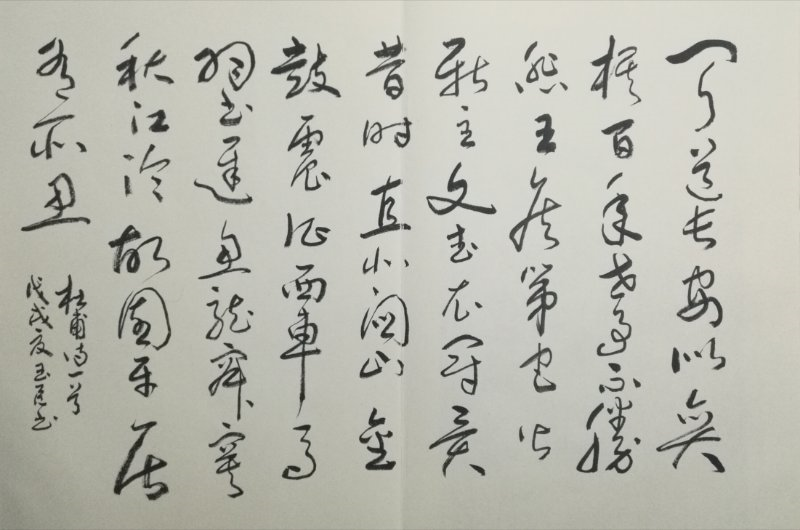 闻道长安似奕
棋百年世事不勝
悲王侯第宅皆
新主文武衣冠異
昔时直北関山金
鼓震征西車马
羽书遲鱼龍寂寞
秋江冷故國平居
有所思
杜甫诗一首
戊戌夏玉书